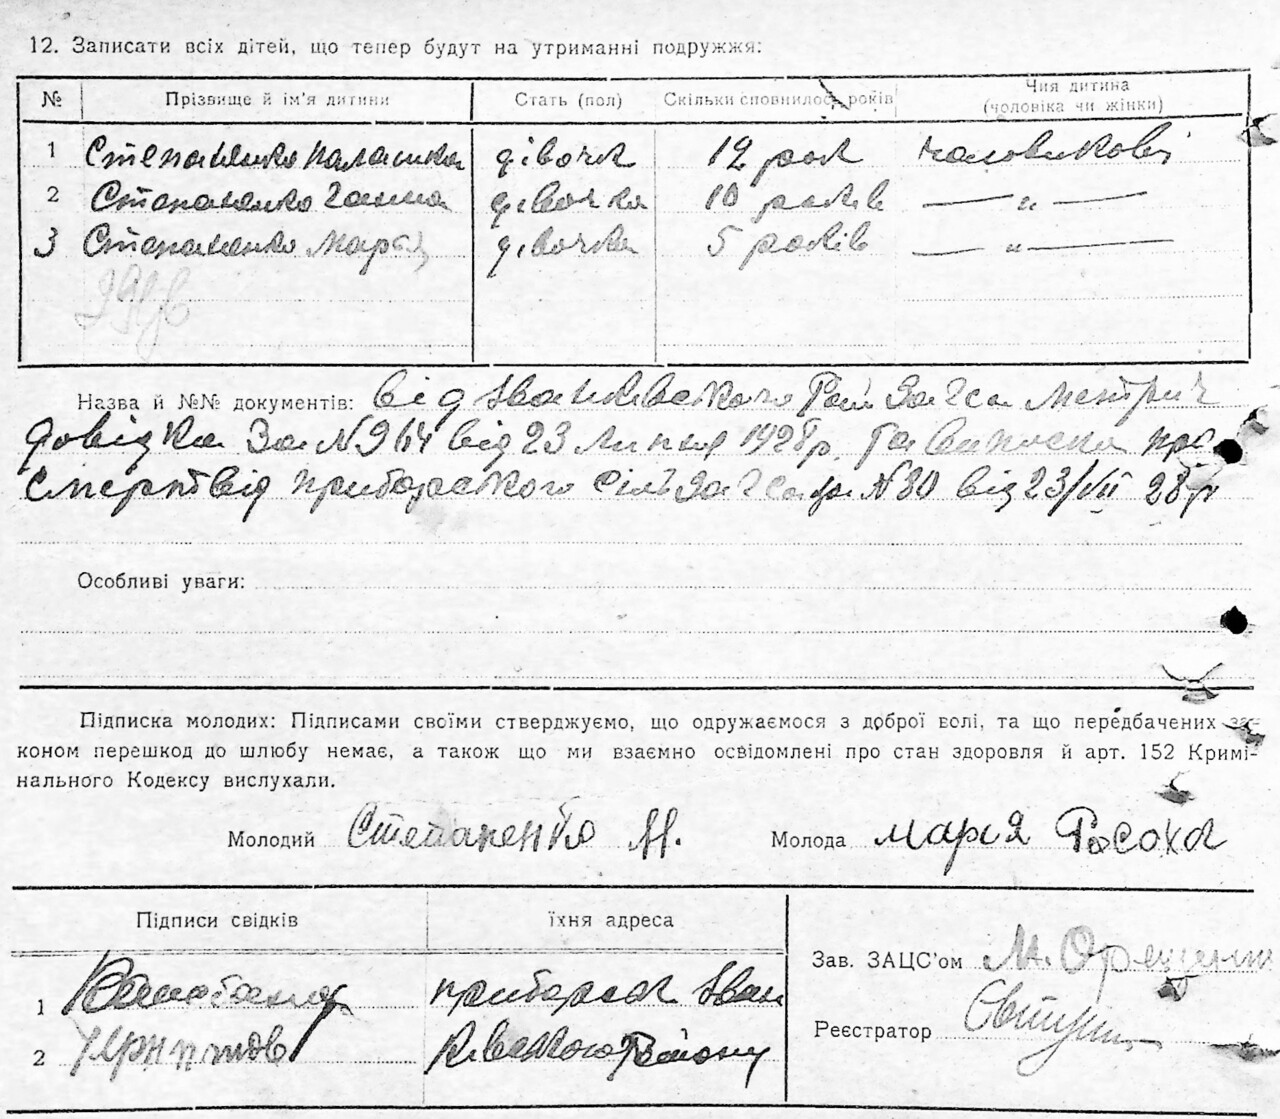 12. Записати всіх дітей, що тепер будут на утриманні подружжя:
№ Прізвище й ім'я дитини Стать (пол) Скільки сповнилось років Чия дитина (чоловіка чи жінки)
1 Степаненко Палашка дівочк 12 рок чоловікові
2 Степаненко Ганна дівочка 10 років — „ —
3 Степаненко Марья дівочка 5 років — „ —
Назва й №№ документів: Від Іванківського Рай Загса Метрич
довідка За №964 від 23 липня 1928р. та виписка про
смерть від Приборського сільзагса за №30 від 23/VII 28р
Особливі уваги:
Підписка молодих: Підписами своїми стверджуємо, що одружаємося з доброї волі, та що передбачених за-
коном перешкод до шлюбу немає, а також що ми взаємно освідомлені про стан здоровля й арт. 152 Кримі-
нального Кодексу вислухали.
Молодий Степаненко М. Молода Марія Росоха
Підписи свідків Їхня адреса
Зав. ЗАЦС'ом М.
1 Приборск Іван
Реєстратор
2 ківського Району